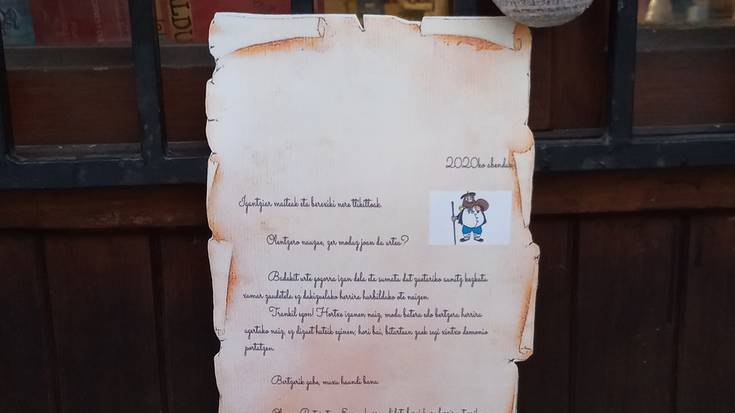 2020ko abendua
Igantziar maiteak eta bereziki nere ttikittoak
Olentzero nauzue, zer moduz joan da urtea?
Badakit urte gogorra izan dela eta sumatu dut zuetariko aunitz kezkatu
xamar zaudetela ez dakizuelako herrira hurbilduko ote naizen.
Trankil egon! Hortxe izanen naiz, modu batera edo bertzera herrira
agertuko naiz, ez dizuet hutsik eginen; hori bai, bitartean zuek segi xintxo demonio
portatzen.
Bertzerik gabe, muxu haundi bana